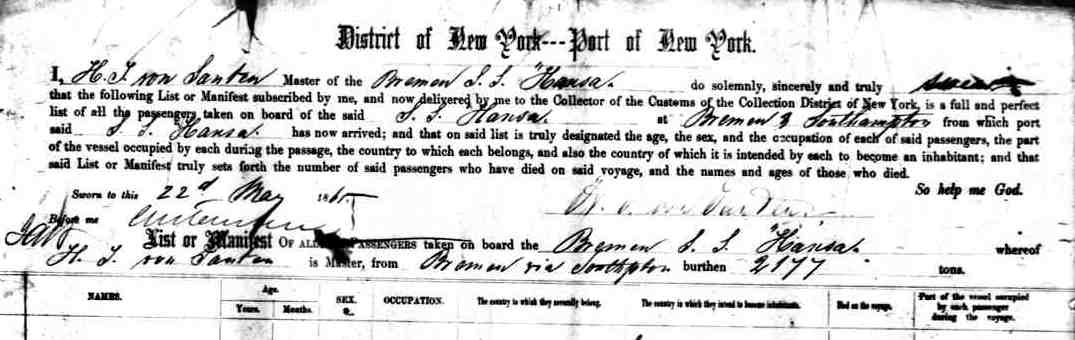 District of New York---Port of New York.
I, H. J. von Santen Master of the Bremen S. S. "Hansa. do solemnly, sincerely and truly swear
that the following List or Manifest subscribed by me, and now delivered by me to the Collector of the Customs of the Collection District of New York, is a full and perfect
list of all the passengers taken on board of the said S. S. Hansa. at Bremen & Southampton from which port
said S. S. Hansa. has now arrived; and that on said list is truly designated the age, the sex, and the occupation of each of said passengers, the part
of the vessel occupied by each during the passage, the country to which each belongs, and also the country of which it is intended by each to become an inhabitant; and that
said List or Manifest truly sets forth the number of said passengers who have died on said voyage, and the names and ages of those who died.
So help me God.
Sworn to this 22d May 1865
Before me
List or Manifest OF ALL THE PASSENGERS taken on board the Bremen S. S. "Hansa. whereof
H. J. von Santen is Master, from Bremen via Southpton burthen 2177 tons.
NAMES. Age. Years. Months. SEX. OCCUPATION. The country to which they severally belong. The country in which they intend to become inhabitants. Died on the voyage. Part of the vessel occupied by each passenger during the voyage.